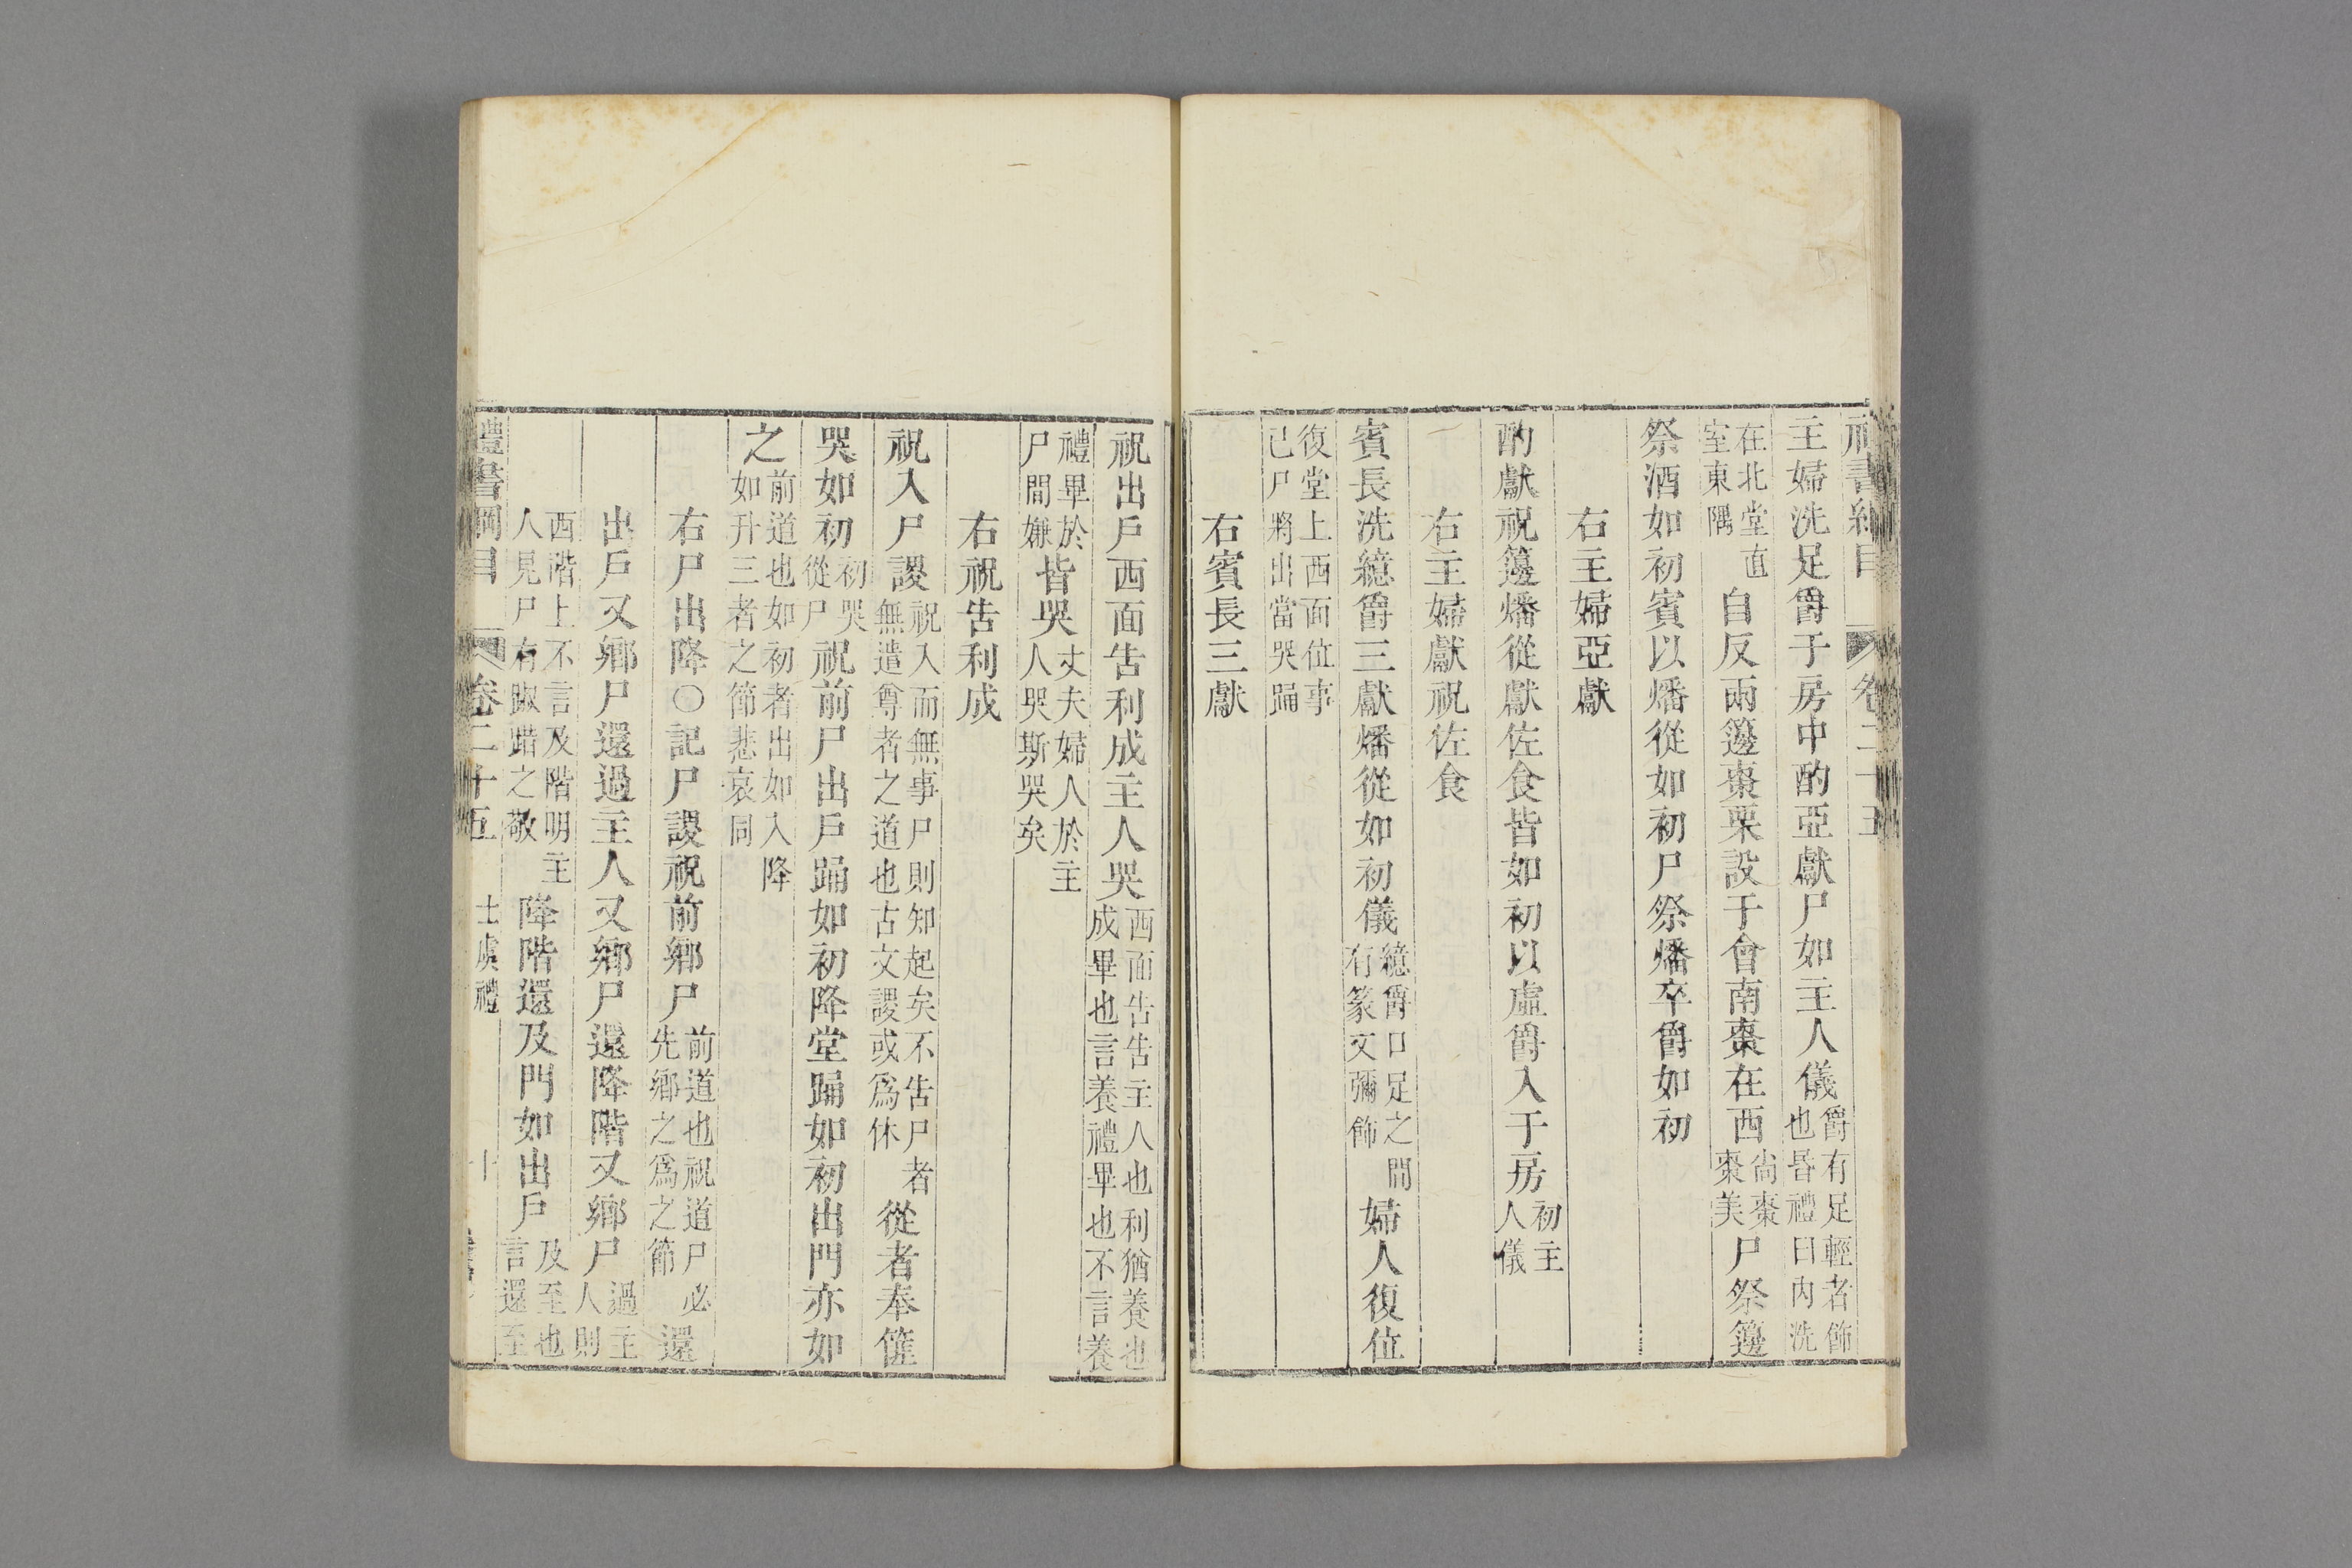 禮書綱目 卷二十五
主婦洗足爵于房中酌亞獻尸如主人儀爵有足輕者飾也昬禮曰内洗
在北堂直室東隅自反兩籩棗栗設于會南棗在西尚棗棗美尸祭籩
祭酒如初賓以燔從如初尸祭燔卒爵如初
右主婦亞獻
酌獻祝籩燔從獻佐食皆如初以虛爵入于房初主人儀
右主婦獻祝佐食
賓長洗繶爵三獻燔從如初儀繶爵口足之間有篆文彌飾婦人復位
復堂上西面位事已尸將出當哭踊
右賓長三獻
祝出戶西面告利成主人哭西面告告主人也利猶養也成畢也言養禮畢也不言養
禮畢於尸間嫌皆哭丈夫婦人於主人哭斯哭矣
右祝告利成
祝入尸謖祝入而無事尸則知起矣不告尸者無遣尊者之道也古文謖或爲休從者奉篚
哭如初初哭從尸祝前尸出戶踊如初降堂踊如初出門亦如
之前道也如初者出如入降如升三者之節悲哀同
右尸出降○記尸謖祝前鄉尸前道也祝道尸必先鄉之爲之節還
出戶又鄉尸還過主人又鄉尸還降階又鄉尸過主人則
西階上不言及階明主人見尸有踧踖之敬降階還及門如出戶及至也言還至
禮書綱目 卷二十五 士虞禮 十